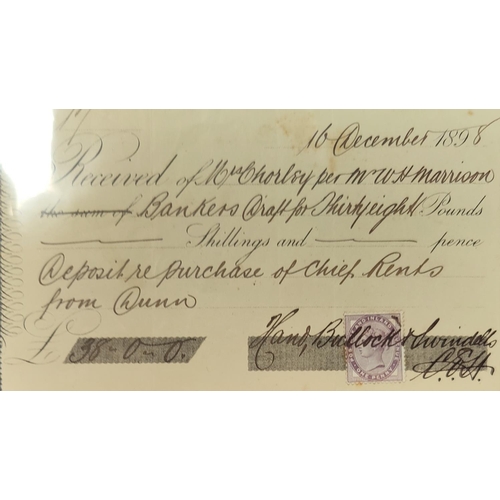 16 December 1898
Received of Mrs Chorley per Mr W H Marrison
the sum of Bankers Draft for Thirtyeight Pounds
Shillings and pence
Deposit re purchase of Chief Rents
from Dunn
£ 38-0-0.
Hand, Bullock & Swindells
ONE PENNY